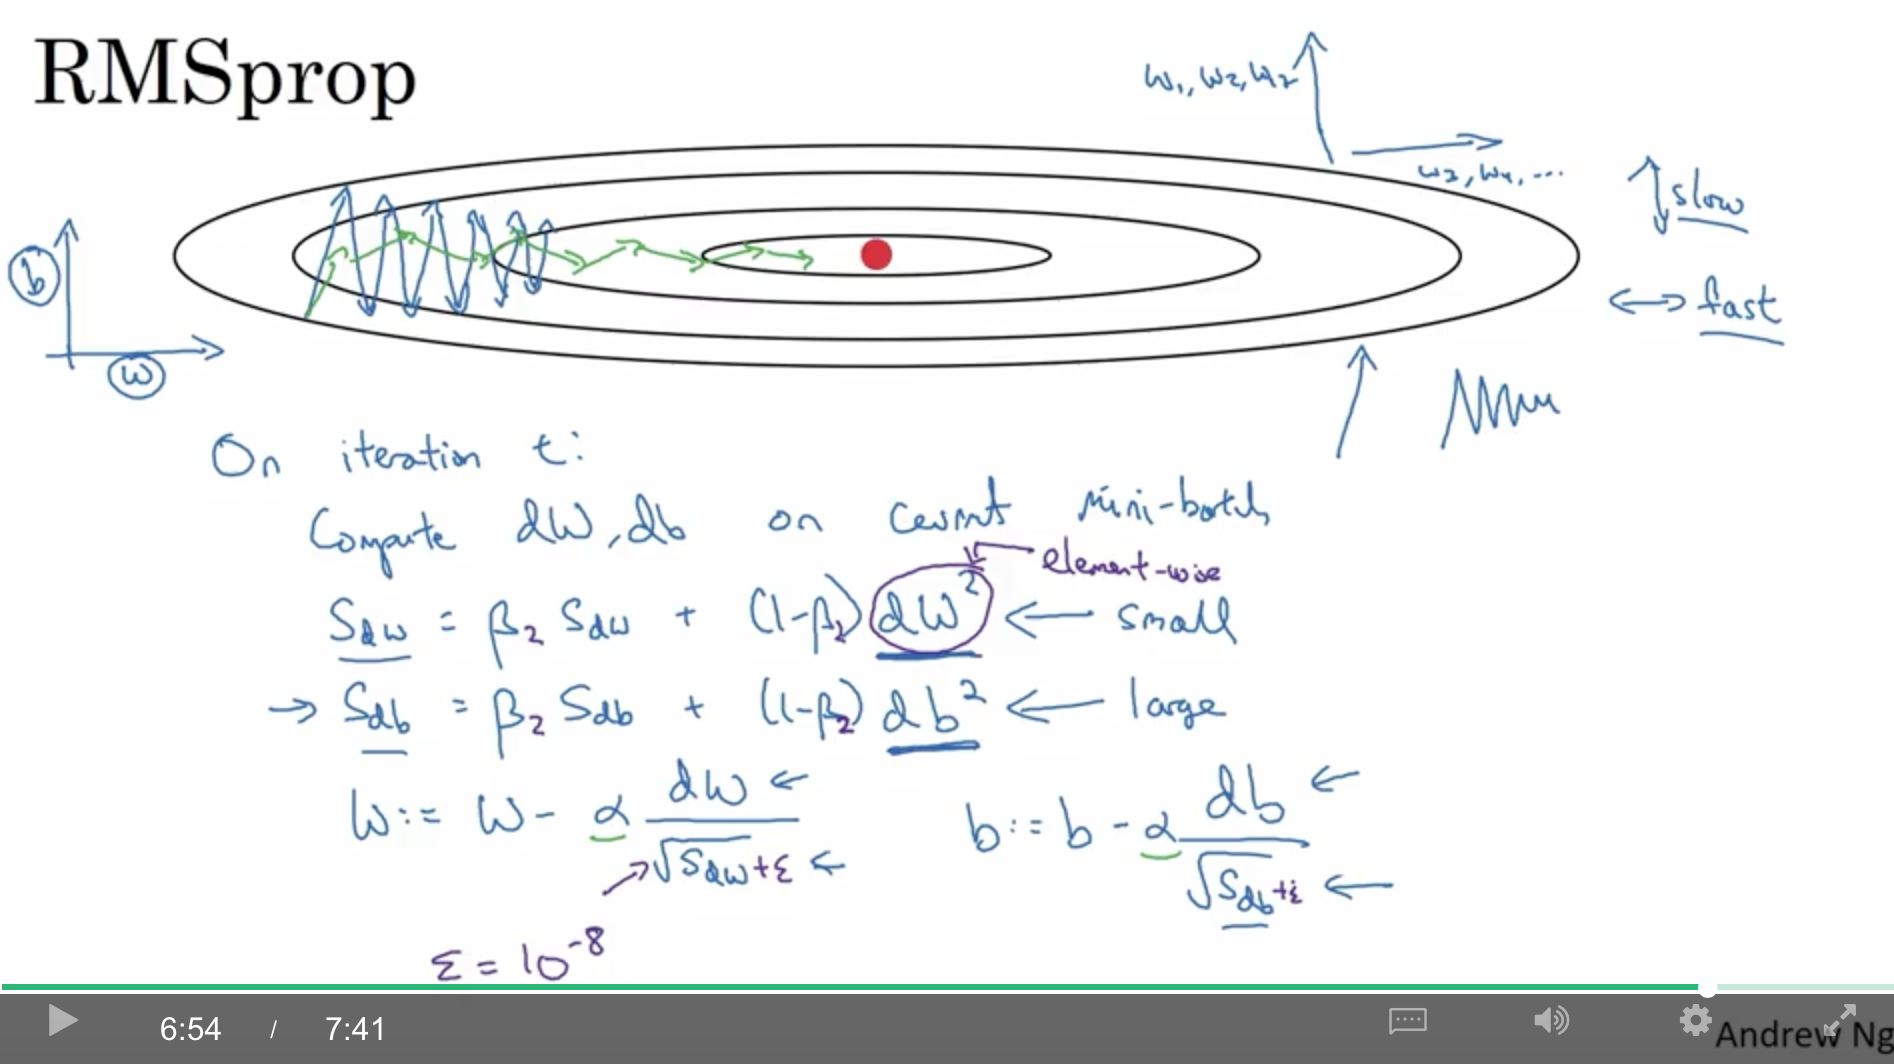 RMSprop
w₁, w₂, w₂
w₃, w₄, ...
slow
b
fast
w
On iteration t:
Compute dW, db on current mini-batch
element-wise
S_dw = β₂ S_dw + (1-β₂) dW² ← small
→ S_db = β₂ S_db + (1-β₂) db² ← large
w := w - α dw / √S_dw + ε ←
b := b - α db / √S_db + ε ←
ε = 10⁻⁸
6:54 / 7:41
Andrew Ng